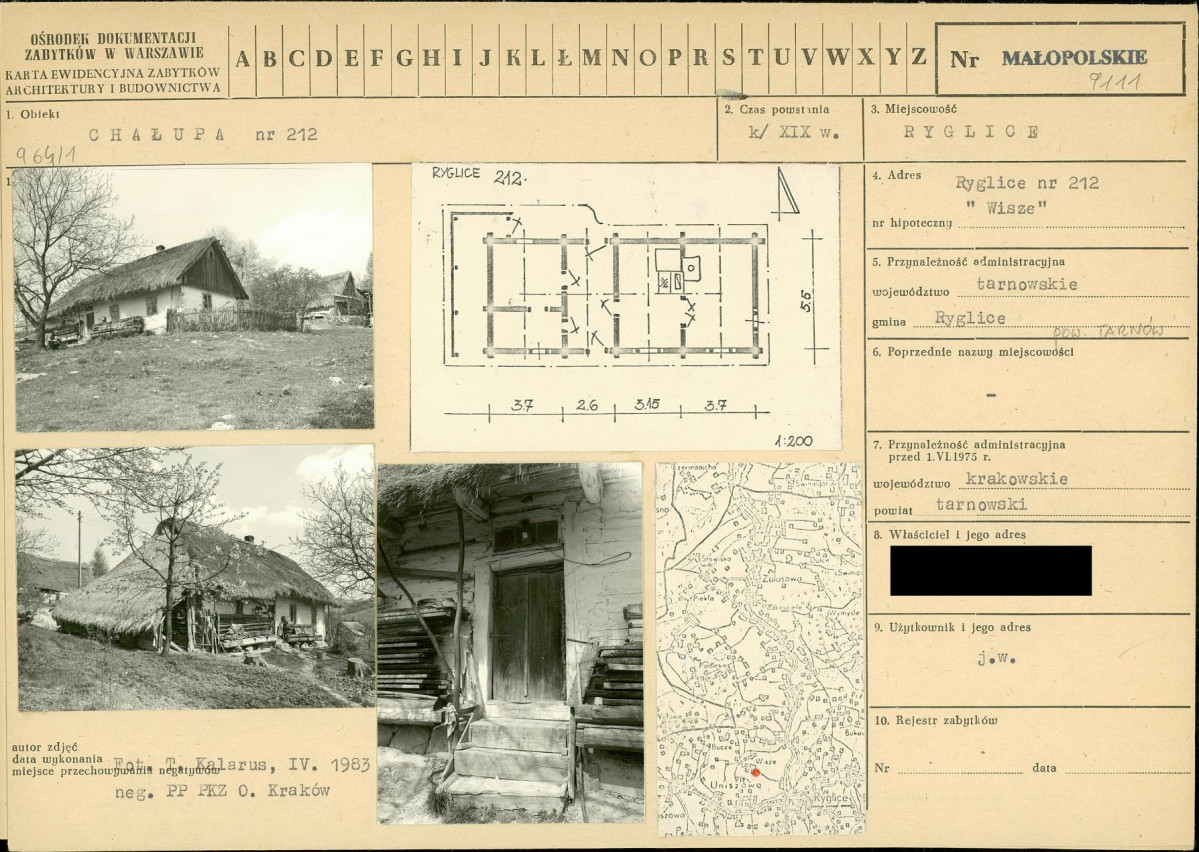 OŚRODEK DOKUMENTACJI
ZABYTKÓW W WARSZAWIE
KARTA EWIDENCYJNA ZABYTKÓW
ARCHITEKTURY I BUDOWNICTWA
A B C D E F G H I J K L Ł M N O P R S T U V W X Y Z
Nr MAŁOPOLSKIE
9111
1. Obiekt
CHAŁUPA nr 212
964/1
2. Czas powstania
k/ XIX w.
3. Miejscowość
RYGLICE
4. Adres
Ryglice nr 212
" Wisze"
nr hipoteczny
5. Przynależność administracyjna
województwo tarnowskie
gmina Ryglice
pow. TARNÓW
6. Poprzednie nazwy miejscowości
-
7. Przynależność administracyjna
przed 1.VI.1975 r.
województwo krakowskie
powiat tarnowski
8. Właściciel i jego adres
9. Użytkownik i jego adres
j.w.
10. Rejestr zabytków
Nr data
RYGLICE 212.
5.5
3.7 2.6 3.15 3.7
1:200
Zalasowa
Wisze
Uniszowa
Ryglice
autor zdjęć
data wykonania
miejsce przechowywania negatywów
Fot. T. Kalarus, IV. 1983
neg. PP PKZ O. Kraków